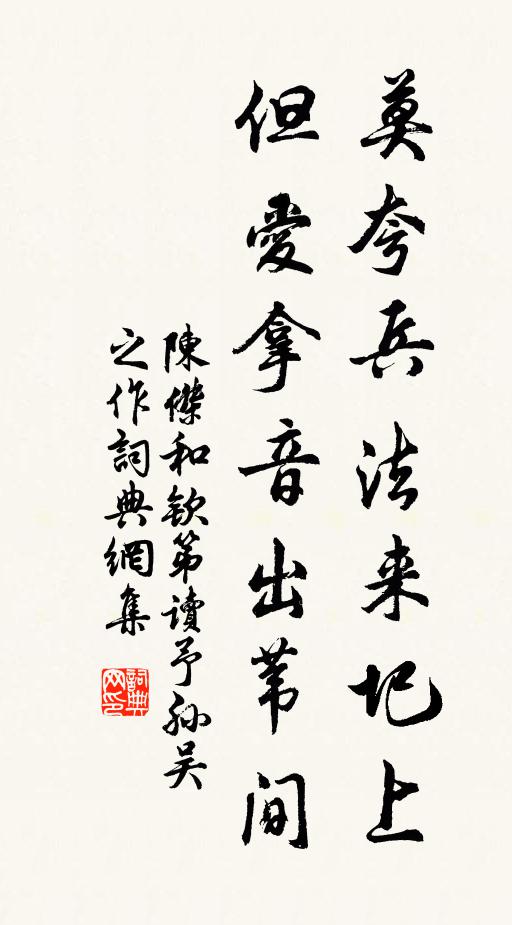 莫夸兵法来圯上
但愛拿音出苇间
陳傑和欽第讀予孙吴
之作詞典網集
詞典
网印